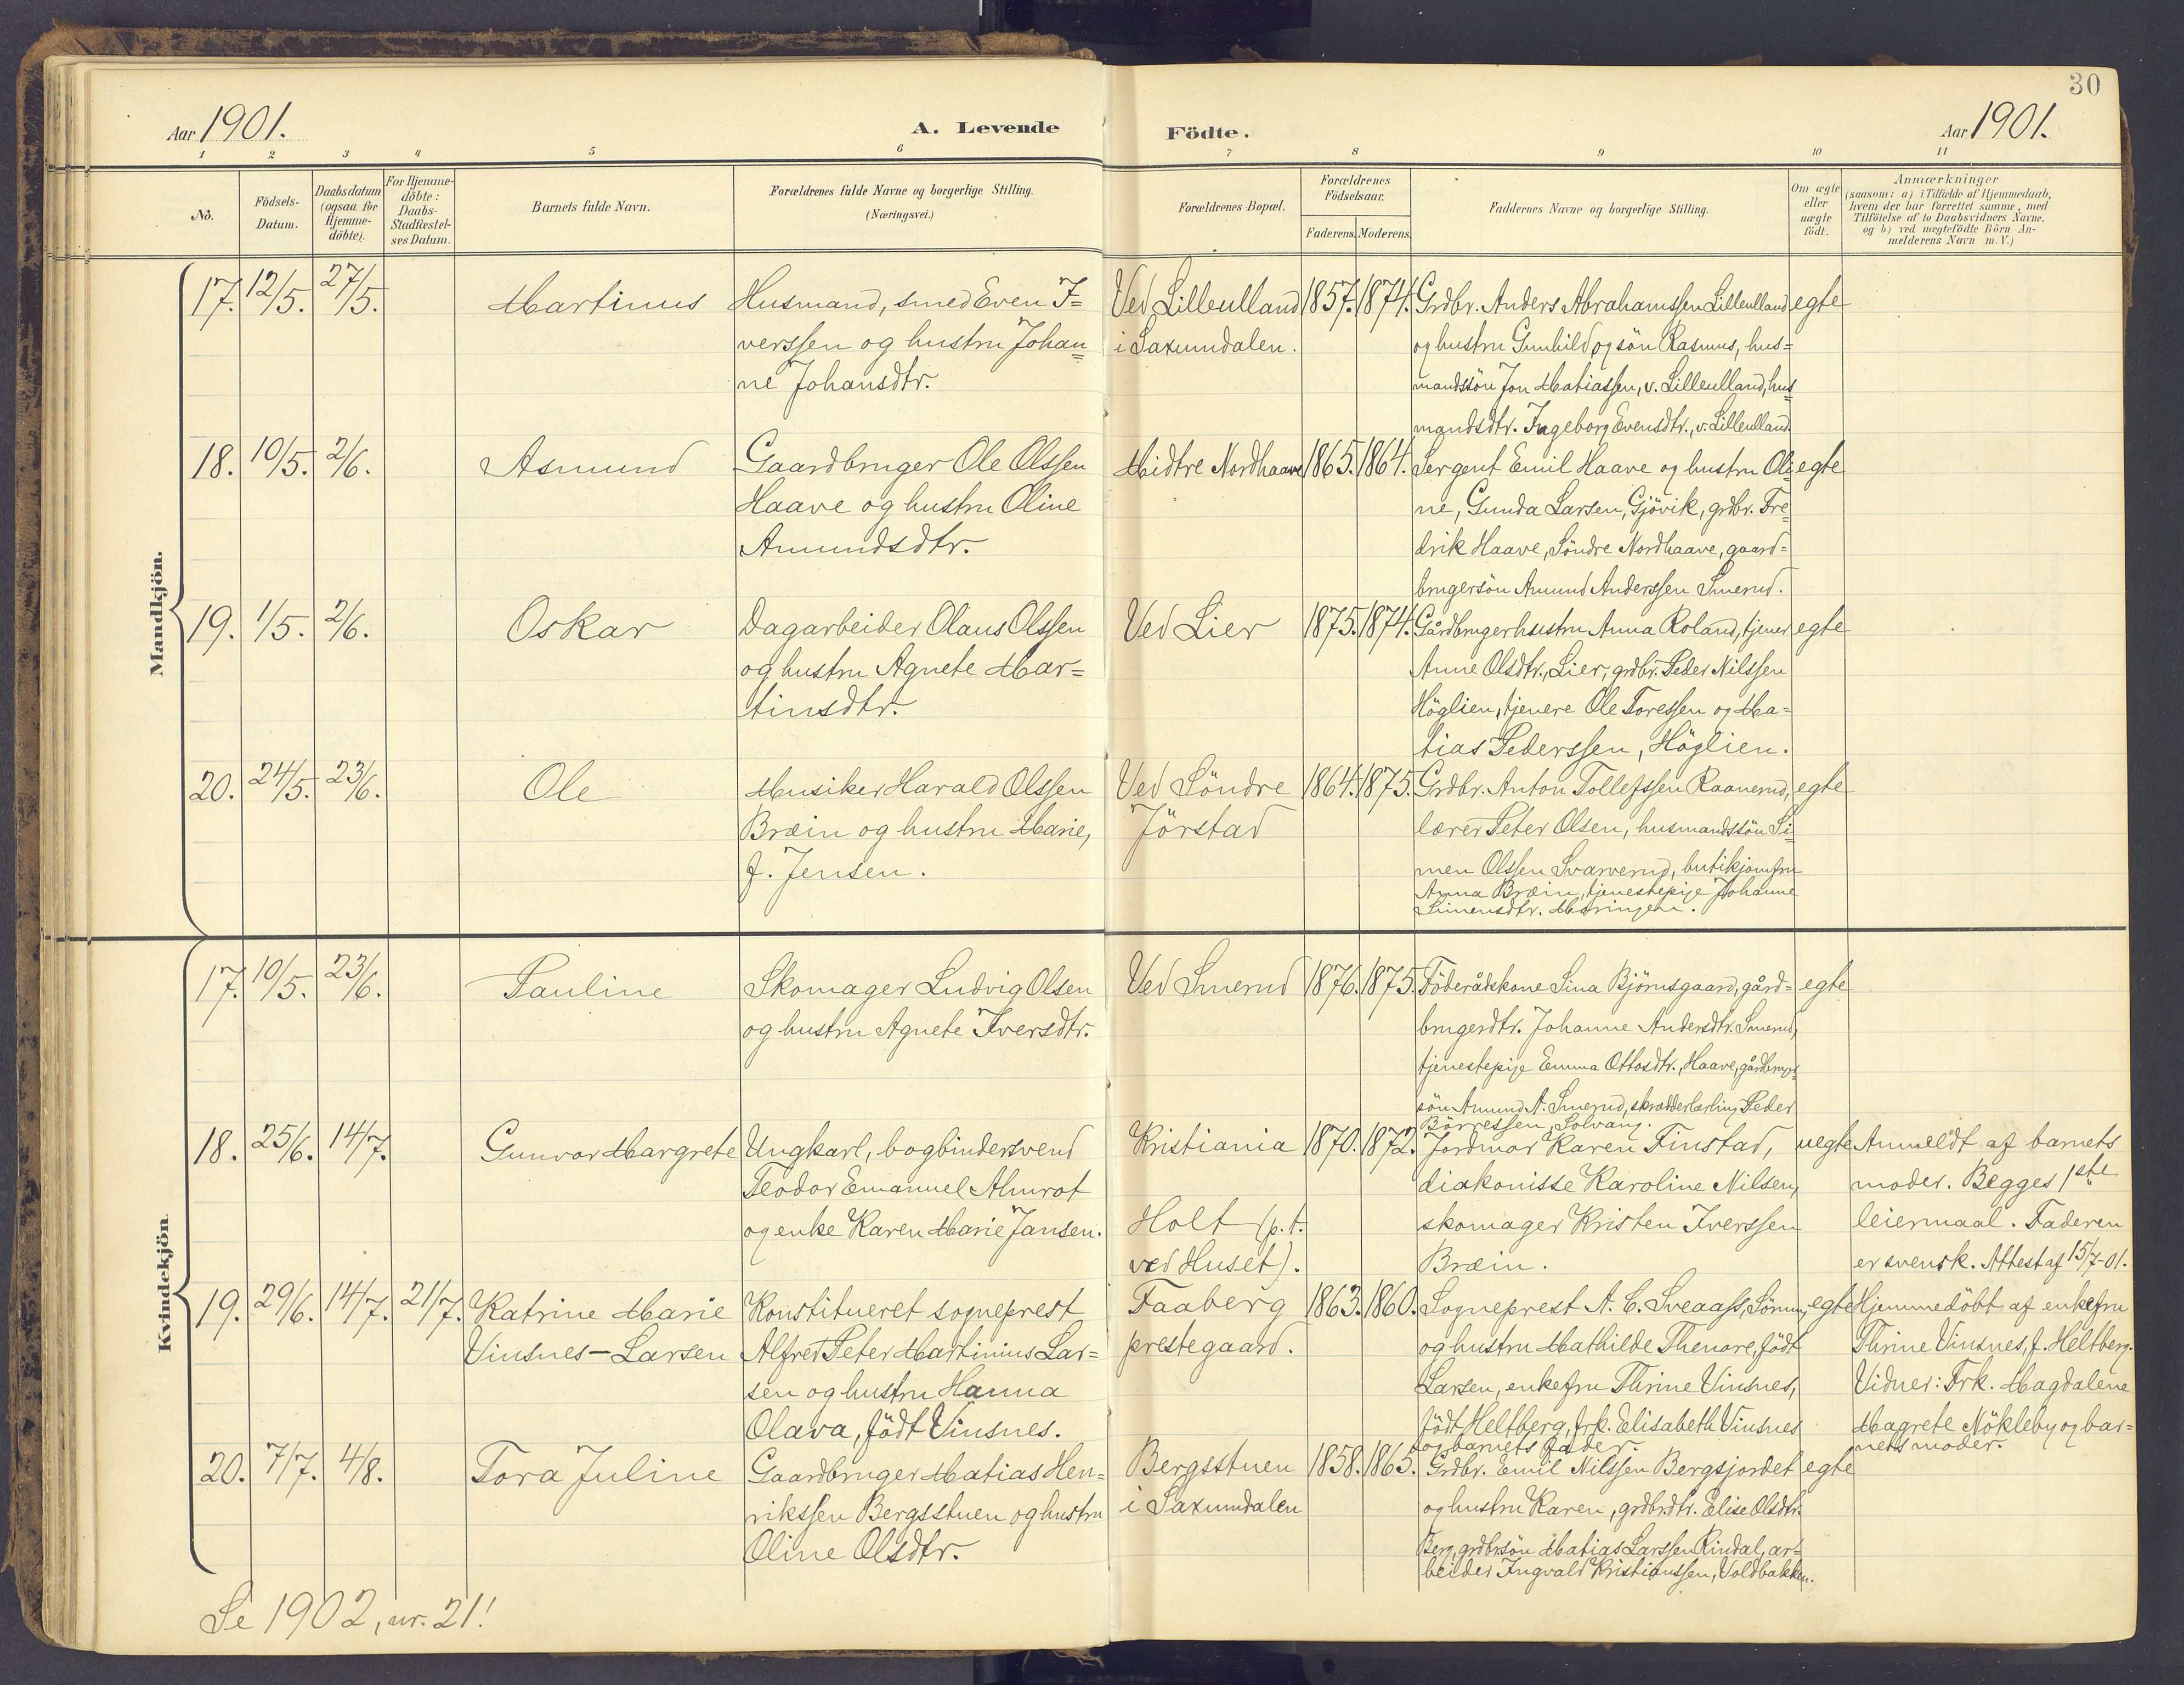 30
Aar 1901.
A. Levende Födte.
Aar 1901.
1 2 3 4 5 6 7 8 9 10 11
No.
Födsels-
Datum.
Daabsdatum
(ogsaa for
Hjemme-
döbte).
For Hjemme-
döbte:
Daabs-
Stadfæstel-
ses Datum.
Barnets fulde Navn.
Forældrenes fulde Navne og borgerlige Stilling.
(Næringsvei.)
Forældrenes Bopæl.
Forældrenes
Födselsaar.
Faderens. Moderens.
Faddernes Navne og borgerlige Stilling.
Om ægte
eller
uægte
födt.
Anmærkninger
(saasom: a) i Tilfælde af Hjemmedaab,
hvem der har forrettet samme, med
Tilföielse af to Daabsvidners Navne.
og b) ved uægtefödte Börn An-
melderens Navn m.V.)
Mandkjön.
17. 12/5. 27/5. Martinus
Husmand, smed Even I=
verssen og hustru Johan=
ne Johansdtr.
Ved Lilleulland
i Saxumdalen.
1857. 1874.
Grdbr. Anders Abrahamssen Lilleulland
og hustru Gunhild og sön Rasmus, hus=
mandssön Jon Matiassen, v. Lilleulland, hus=
mandsdtr. Ingeborg Evensdtr., v. Lilleulland.
egte
18. 10/5. 2/6. Asmund
Gaardbruger Ole Olssen
Haave og hustru Oline
Amundsdtr.
Midtre Nordhaave
1865. 1864.
Sergent Emil Haave og hustru Oli=
ne, Gunda Larsen, Gjövik, grdbr. Fre=
drik Haave, Söndre Nordhaave, gaard=
brugersön Amund Anderssen Smerud.
egte
19. 1/5. 2/6. Oskar
Dagarbeider Olaus Olssen
og hustru Agnete Mar=
tinsdtr.
Ved Lier
1875. 1874.
Gårdbrugerhustru Anna Roland, tjener
Anne Olsdtr., Lier, grdbr. Peder Nilssen
Höglien, tjenere Ole Toressen og Ma=
tias Pederssen, Höglien.
egte
20. 24/5. 23/6. Ole
Musiker Harald Olssen
Bræin og hustru Marie,
f. Jensen.
Ved Söndre
Jörstad
1864. 1875.
Grdbr. Anton Tollefssen Raanerud,
lærer Peter Olsen, husmandssön Si=
men Olssen Svarverud, butikjomfru
Anna Bræin, tjenestepige Johanne
Simensdtr. Mæringen.
egte
Kvindekjön.
17. 10/5. 23/6. Pauline
Skomager Ludvig Olsen
og hustru Agnete Iversdtr.
Ved Smerud
1876. 1875.
Föderådskone Sina Björnsgaard, gård=
brugerdtr. Johanne Andersdtr. Smerud,
tjenestepige Emma Ottosdtr., Haave, gårdbruger=
sön Amund A. Smerud, skrædderlærling Peder
Börressen, Solvang.
egte
18. 25/6. 14/7. Gunvor Margrete
Ungkarl, bogbindersvend
Teodor Emanuel Almrot
og enke Karen Marie Jansen.
Kristiania
Holt (p.t.
ved Huset).
1870. 1872.
Jordmor Karen Finstad,
diakonisse Karoline Nilsen,
skomager Kristen Iverssen
Bræin.
uegte
Anmeldt af barnets
moder. Begges 1ste
leiermaal. Faderen
er svensk. Attest af 15/7-01.
19. 29/6. 14/7. 21/7. Katrine Marie
Vinsnes-Larsen
Konstitueret sogneprest
Alfred Peter Martinius Lar=
sen og hustru Hanna
Olava, født Vinsnes.
Faaberg
prestegaard.
1863. 1860.
Sogneprest A. C. Sveaass, Sörum,
og hustru Mathilde Thenore, född
Larsen, enkefru Thrine Vinsnes,
född Heltberg, frk. Elisabeth Vinsnes
og barnets fader.
egte
Hjemmedöbt af enkefru
Thrine Vinsnes, f. Heltberg.
Vidner: Frk. Magdalene
Magrete Nökleby og bar=
nets moder.
20. 7/7. 4/8. Tora Juline
Gaardbruger Matias Hen=
rikssen Bergsstuen og hustru
Oline Olsdtr.
Bergsstuen
i Saxumdalen
1858. 1865.
Grdbr. Emil Nilssen Bergsjordet
og hustru Karen, grdbr.dtr. Elise Olsdtr.
Berg, grdbrsön Matias Larssen Rindal, ar=
beider Ingvald Kristianssen, Voldbakken.
egte
Se 1902, nr. 21!